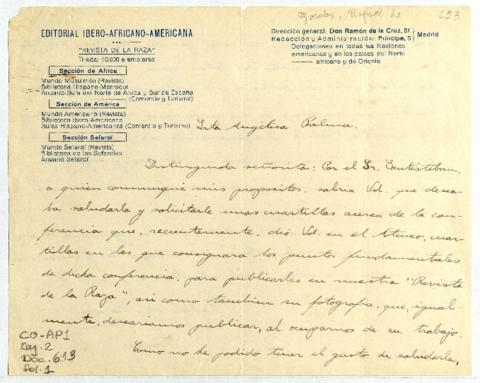 Morales, Rafael de
653
EDITORIAL IBERO-AFRICANO-AMERICANA
"REVISTA DE LA RAZA"
Tirada: 10.000 ejemplares
Sección de África
Mundo Musulmán (Revista)
Biblioteca Hispano-Marroquí
Anuario-Guía del Norte de África y Sur de España
(Comercio y Turismo)
Sección de América
Mundo Americano (Revista)
Biblioteca Ibero Americana
Guías Hispano-Americanas (Comercio y Turismo)
Sección Sefardí
Mundo Sefardí (Revista)
Biblioteca de los Sefardíes
Anuario Sefardí
Dirección general: Don Ramón de la Cruz, 51
Redacción y Administración: Príncipe, 5
Madrid
Delegaciones en todas las Naciones
americanas y en los países del Norte
africano y de Oriente
Srta Angélica Palma.
Distinguida señorita: Por el Sr. Santisteban,
a quien comuniqué mis propósitos, sabría Vd. que desea-
ba saludarla y solicitarle unas cuartillas acerca de la con-
ferencia que, recientemente, dió Vd. en el Ateneo, cuar-
tillas en las que consignara los puntos fundamentales
de dicha conferencia, para publicarlas en nuestra "Revista
de la Raza", así como tambien su fotografía, que, igual-
mente, desearíamos publicar, al ocuparnos de su trabajo.
Como no he podido tener el gusto de saludarla,
CO-AP1
Caj. 2
Doc. 613
Fol. 1